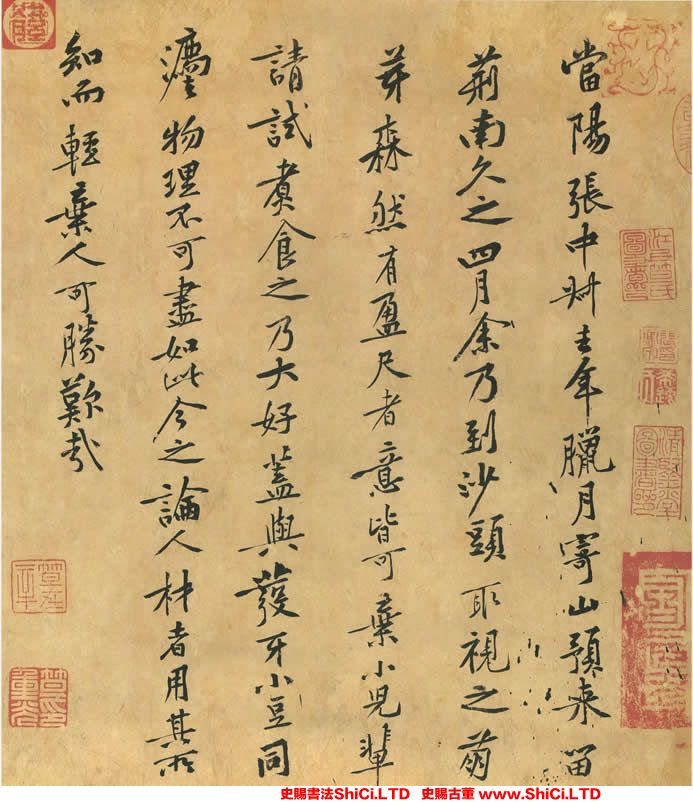 當陽張中叔去年臘月寄山預来留
荊南久之四月余乃到沙頭取視之萌
芽森然有盈尺者意皆可棄小兒輩
請試煑食之乃大好蓋與發牙小豆同
灋物理不可盡如此今之論人材者用其所
知而輕棄人可勝歎哉
史賜書法ShiCi.LTD 史賜古董 www.ShiCi.LTD